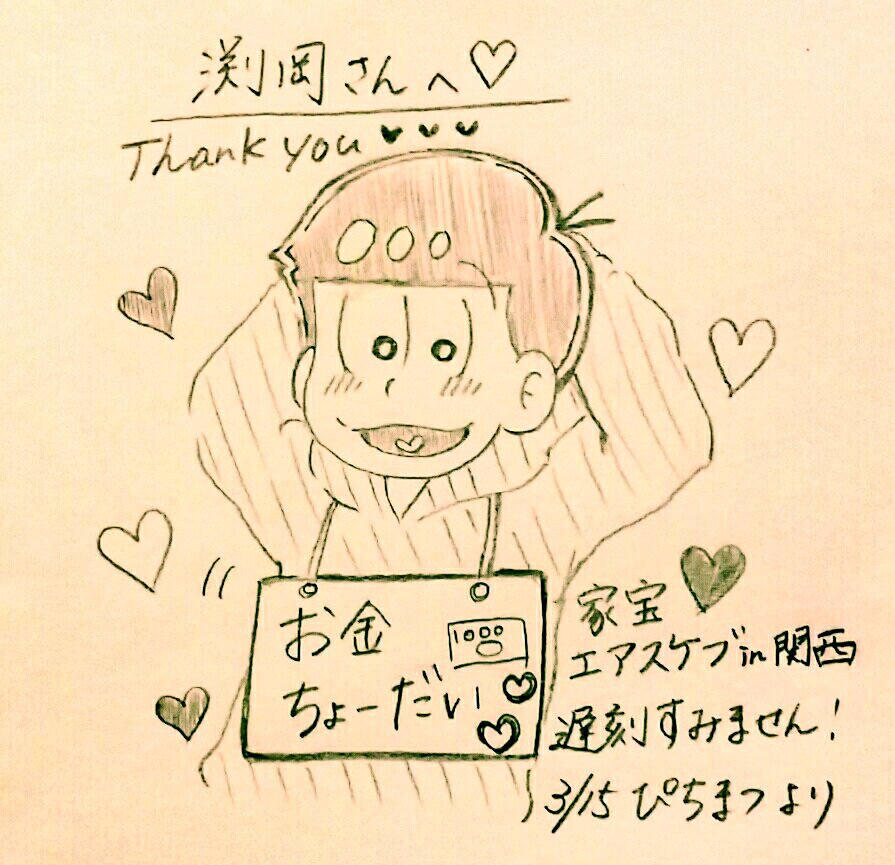 渕岡さんへ♡
Thank you
お金
1000
ちょーだい
家宝
エアスケブin関西
遅刻すみません!
3/15 ぴちまつより